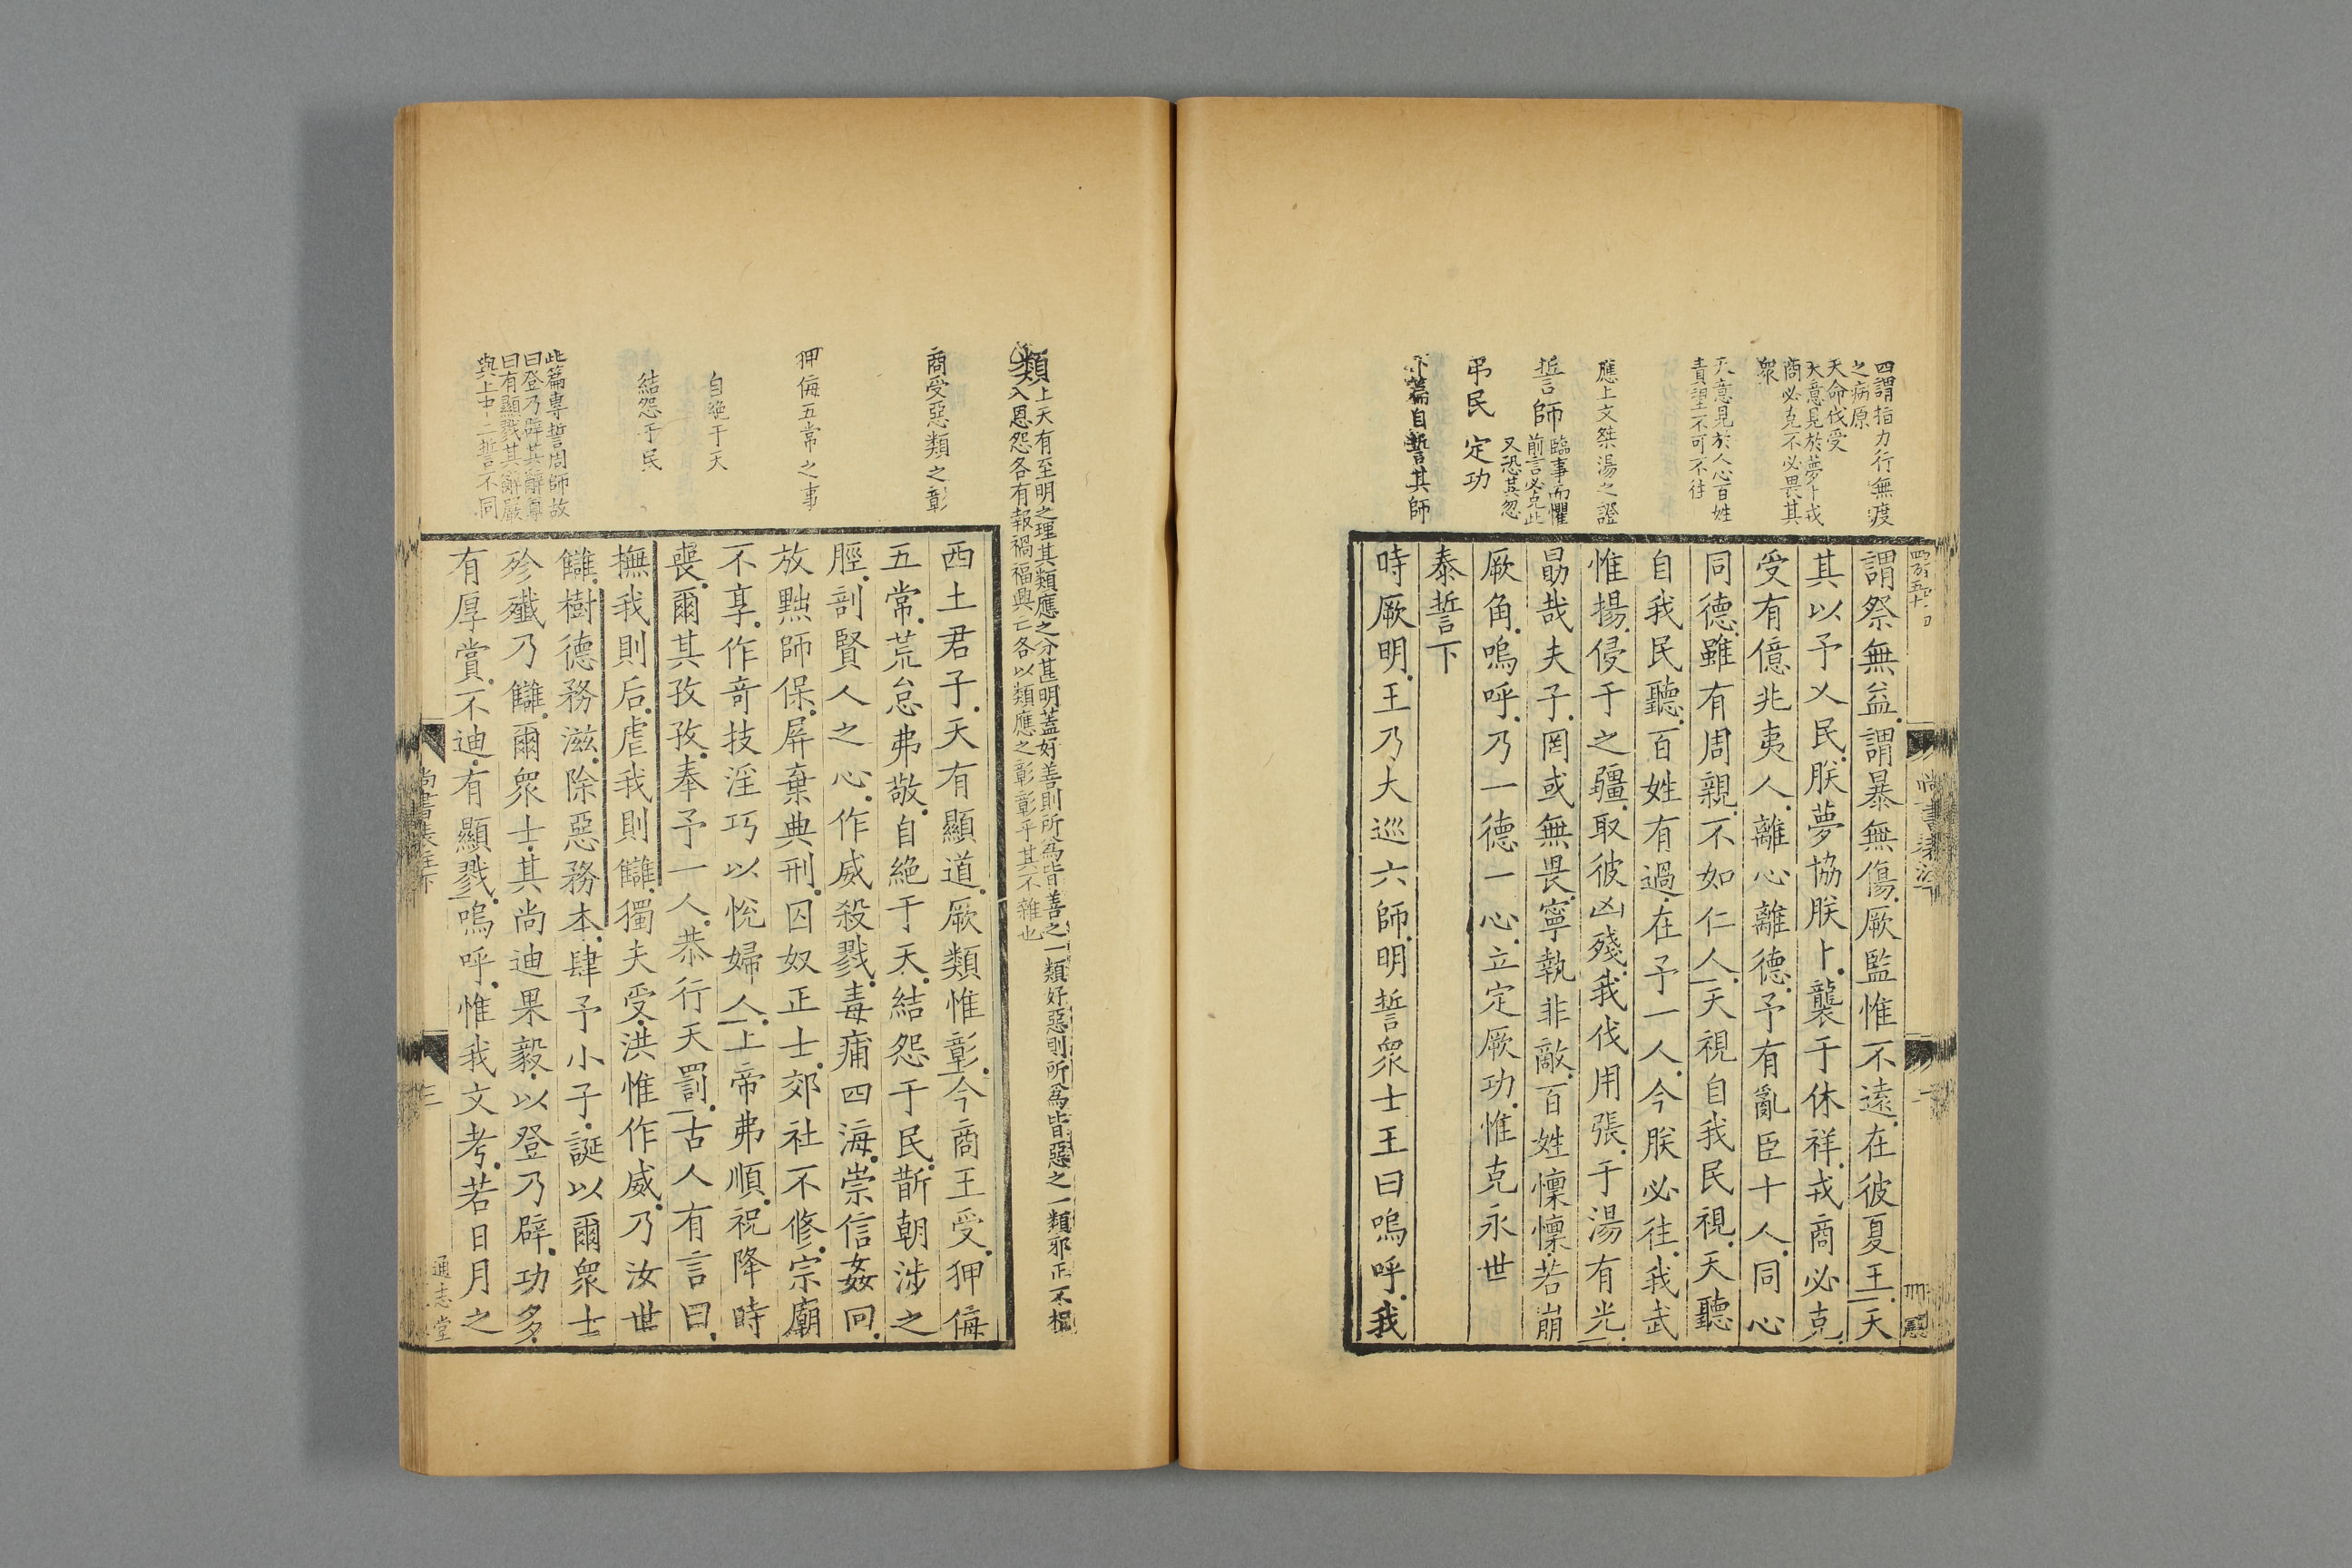 四謂指力行無度
之病原
天命伐受
天意見於夢卜戎
商必克不必畏其
衆
天意見於人心百姓
責望不可不往
應上文桀湯之證
誓師
臨事而懼
前言必克此
又恐其忽
弔民
定功
下篇自誓其師
謂祭無益謂暴無傷厥監惟不遠在彼夏王天
其以予乂民朕夢協朕卜襲于休祥戎商必克
受有億兆夷人離心離德予有亂臣十人同心
同德雖有周親不如仁人天視自我民視天聽
自我民聽百姓有過在予一人今朕必往我武
惟揚侵于之疆取彼凶殘我伐用張于湯有光
勗哉夫子罔或無畏寧執非敵百姓懍懍若崩
厥角嗚呼乃一德一心立定厥功惟克永世
泰誓下
時厥明王乃大巡六師明誓衆士王曰嗚呼我
類
上天有至明之理其類應之分甚明蓋好善則所爲皆善之一類好惡則所爲皆惡之一類邪正不相
入恩怨各有報禍福興亡各以類應之彰彰乎其不雜也
商受惡類之彰
狎侮五常之事
自絶于天
結怨于民
此篇專誓周師故
曰登乃辟其辭尊
曰有顯戮其辭嚴
與上中二誓不同
西土君子天有顯道厥類惟彰今商王受狎侮
五常荒怠弗敬自絶于天結怨于民斮朝涉之
脛剖賢人之心作威殺戮毒痡四海崇信姦回
放黜師保屏棄典刑囚奴正士郊社不修宗廟
不享作奇技淫巧以悅婦人上帝弗順祝降時
喪爾其孜孜奉予一人恭行天罰古人有言曰
撫我則后虐我則讎獨夫受洪惟作威乃汝世
讎樹德務滋除惡務本肆予小子誕以爾衆士
殄殲乃讎爾衆士其尚迪果毅以登乃辟功多
有厚賞不迪有顯戮嗚呼惟我文考若日月之
尚書表注下
三
通志堂